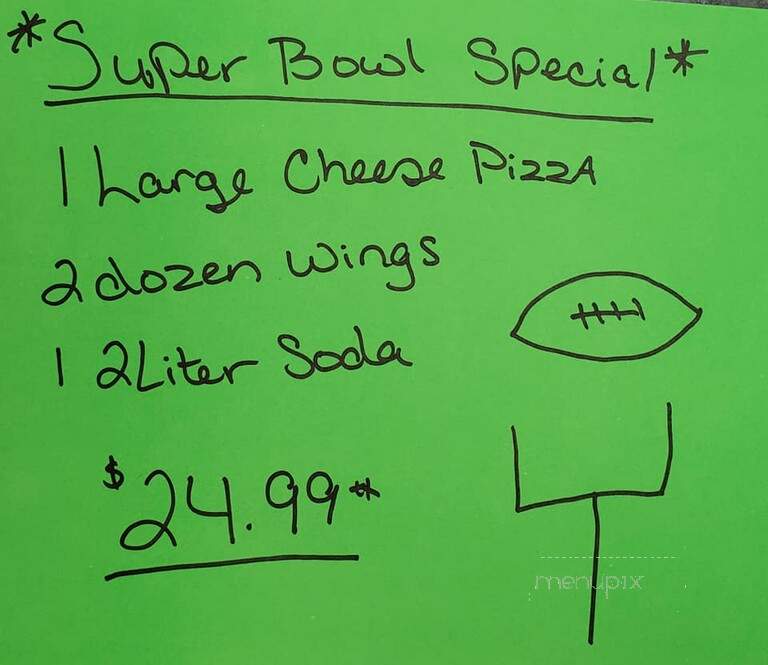 *Super Bowl Special*
1 Large Cheese Pizza
2 dozen wings
1 2Liter Soda
$24.99*
menupix